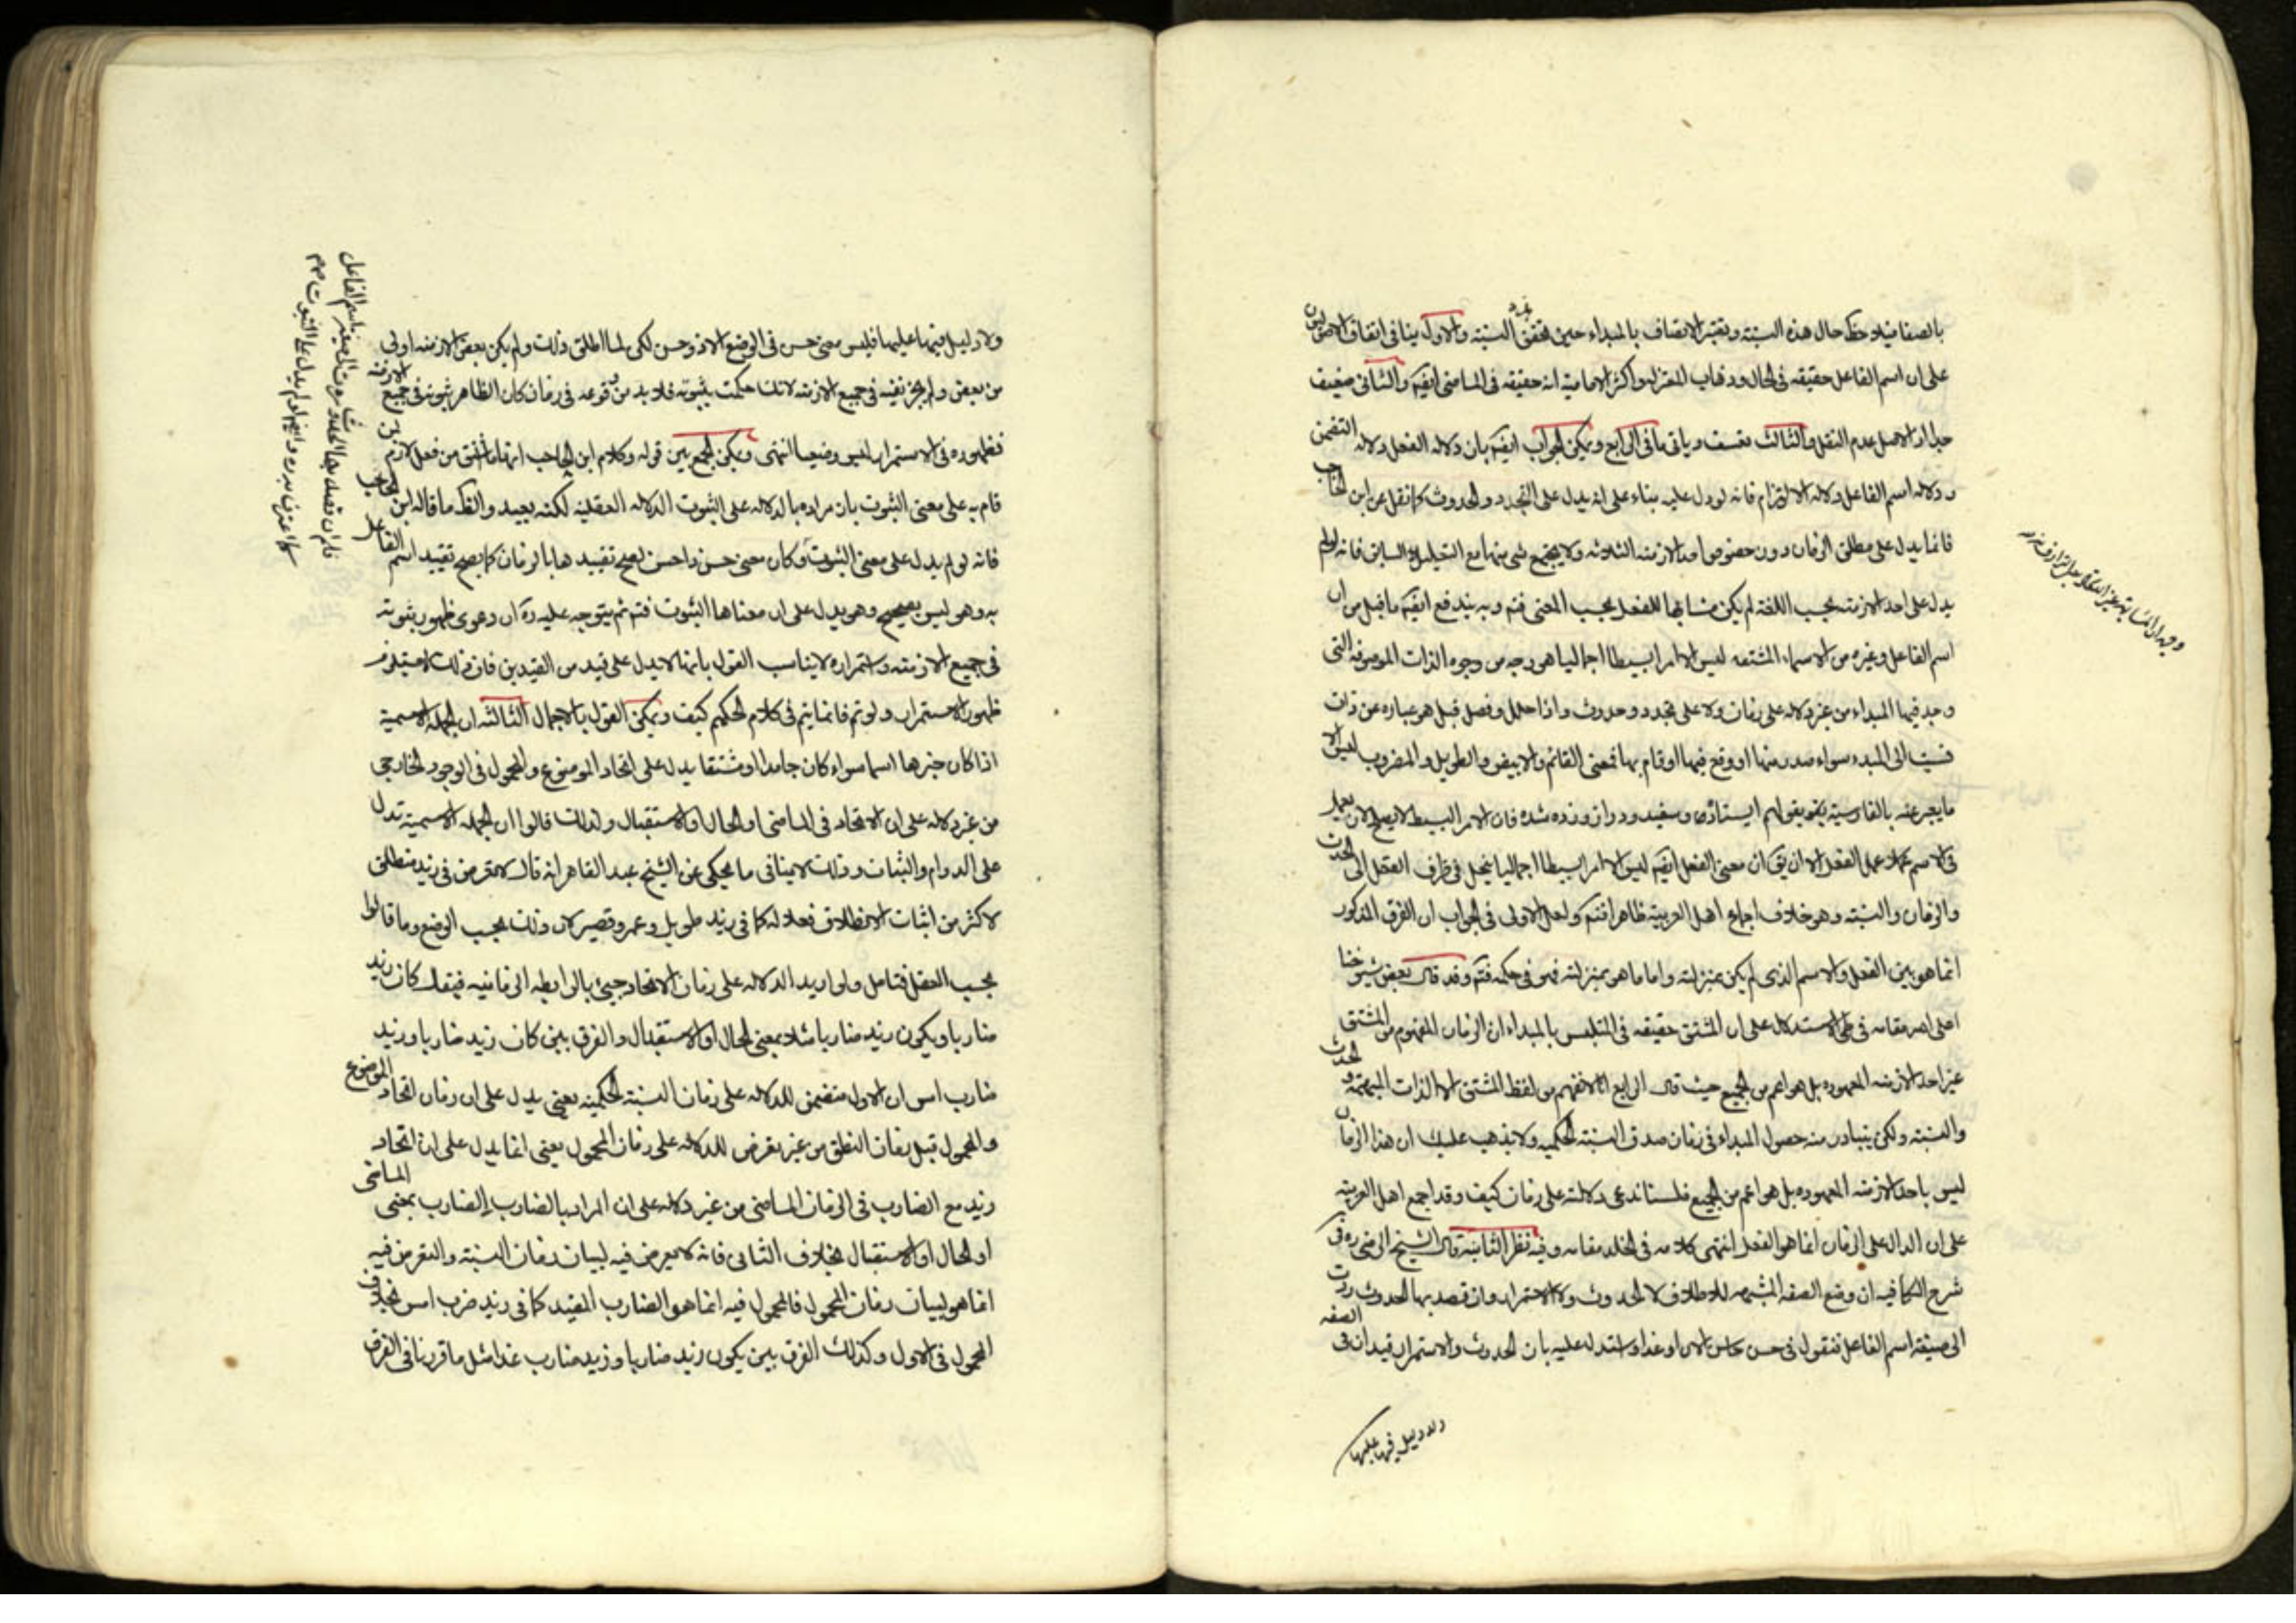 بالصفا فيلاحظ حال هذه النسبة ويعتبر الاتصاف بالمبداء حين تحقق النسبة والاول ينافى اتفاق الاصوليين
على ان اسم الفاعل حقيقه فى الحال وذهاب المعتزله واكثر الاماميه انه حقيقه فى الماضى ايضا والثانى ضعيف
جدا اذ الاصل عدم النقل والثالث تعسف وياتى ما فى الرابع ويمكن الجواب ايضا بان دلاله الفعل دلاله التضمن
ودلاله اسم الفاعل دلاله الالتزام فانه لو دل عليه بناء على انه يدل على التجدد والحدوث كما نقل عن ابن الحاجب
فانما يدل على مطلق الزمان دون خصوص احد الازمنه الثلاثه ولا يجتمع شى منها مع التعليل السابق فانه لو لم
يدل على احد الازمنه بحسب اللغه لم يكن مشابها للفعل بحسب المعنى فتم وبه يندفع ايضا ما قيل من ان
اسم الفاعل وغيره من الاسماء المشتقه ليس الا امرا بسيطا اجماليا هو وجه من وجوه الذات الموصوفه التى
وجد فيها المبداء من غير دلاله على زمان ولا على تجدد وحدوث واذا حلل وفصل قيل هو عباره عن ذات
نسبت الى المبدء سواء صدر منها او وقع فيها او قام بها فمعنى القائم والابيض والطويل والمضروب ليس الا
ما يعبر عنه بالفارسيه بقولهم ايستاده و سفيد و دراز و زده شده فان الامر البسيط لا يصلح لان يعمل
فى الاسم عمل الفعل الا ان يق ان معنى الفعل ايضا ليس الا امرا بسيطا اجماليا ينحل فى ظرف العقل الى الحدث
والزمان والنسبه وهو خلاف اجماع اهل العربيه ظاهرا فتم ولعل الاولى فى الجواب ان الفرق المذكور
انما هو بين الفعل والاسم الذى لم يكن بمنزلته واما ما هو بمنزلته فهو فى حكمه فتم وقد قال بعض شيوخنا
اعلى الله مقامه فى طى الاستدلال على ان المشتق حقيقه فى المتلبس بالمبداء ان الزمان المفهوم من المشتق
غير احد الازمنه المعهوده بل هو اعم من الجميع حيث قال الرابع انا لا نفهم من لفظ المشتق الا الذات المبهمه والحدث
والنسبه ولكن يتبادر منه حصول المبداء فى زمان صدق النسبه الحكميه ولا يذهب عليك ان هذا الزمان
ليس باحد الازمنه المعهوده بل هو اعم من الجميع فلسنا ندعى دلالته على زمان كيف وقد اجمع اهل العربيه
على ان الدال على الزمان انما هو الفعل انتهى كلامه فى الخلد مقامه وفيه نظر الثانيه قال الشيخ الرضى ره فى
شرح الكافيه ان وضع الصفه المشبهه للاطلاق لا الحدوث ولا الاستمرار وان قصد بها الحدوث ردت
الى صيغه اسم الفاعل فتقول فى حسن حاسن الان او غدا واستدل عليه بان الحدوث والاستمرار قيدان فى الصفه
ولا دليل فيها عليها
ولا دليل فيها عليها فليس معنى حسن فى الوضع الا ذو حسن لكن لما اطلق ذلك ولم يكن بعض الازمنه اولى
من بعض ولم يجز نفيه فى جميع الازمنه لانك حكمت بثبوته فلا بد من وقوعه فى زمان كان الظاهر ثبوته فى جميع الازمنه
فظهوره فى الاستمرار ليس وضعيا انتهى ويمكن الجمع بين قوله وكلام ابن الحاجب انها ما اشتق من فعل لازم لمن
قام به على معنى الثبوت بان مراده بالدلاله على الثبوت الدلاله العقليه لكنه بعيد والظ ما قاله ابن الحاجب
فانه لو لم يدل على معنى الثبوت وكان معنى حسن ذا حسن لصح تقييدها بالزمان كما يصح تقييد اسم الفاعل
به وهو ليس بصحيح وهو يدل على ان معناها الثبوت فتم ثم يتوجه عليه ره ان دعوى ظهور ثبوته
فى جميع الازمنه واستمراره لا يناسب القول بانها لا يدل على قيد من القيدين فان ذلك لا يستلزم
ظهور الاستمرار ولو تم فانما يتم فى كلام الحكيم كيف ويمكن القول بالاجمال الثالثه ان الجمله الاسميه
اذا كان خبرها اسما سواء كان جامدا او مشتقا يدل على اتحاد الموضوع والمحمول فى الوجود الخارجى
من غير دلاله على ان الاتحاد فى الماضى او الحال او الاستقبال ولذلك قالوا ان الجمله الاسميه تدل
على الدوام والثبات وذلك لا ينافى ما يحكى عن الشيخ عبد القاهر انه قال لا تعرض فى زيد منطلق
لاكثر من اثبات الانطلاق فعلا له كما فى زيد طويل وعمرو قصير لان ذلك بحسب الوضع وما قالوا
بحسب العقل فتامل ولو اريد الدلاله على زمان الاتحاد جيئ بالرابطه الزمانيه فيقال كان زيد
ضاربا ويكون زيد ضاربا مثلا بمعنى الحال او الاستقبال والفرق بين كان زيد ضاربا وزيد
ضارب امس ان الاول متضمن للدلاله على زمان النسبه الحكميه يعنى يدل على ان زمان اتحاد الموضوع
والمحمول قبل زمان النطق من غير تعرض للدلاله على زمان المحمول يعنى انما يدل على ان اتحاد
زيد مع الضارب فى الزمان الماضى من غير دلاله على ان المراد بالضارب الضارب بمعنى الماضى
او الحال او الاستقبال بخلاف الثانى فانه لا تعرض فيه لبيان زمان النسبه والتعرض فيه
انما هو لبيان زمان المحمول فالمحمول فيه انما هو الضارب المقيد كما فى زيد ضرب امس بخلاف
المحمول فى الاول وكذلك الفرق بين يكون زيد ضاربا وزيد ضارب غدا مثل ما قررنا فى الفرق